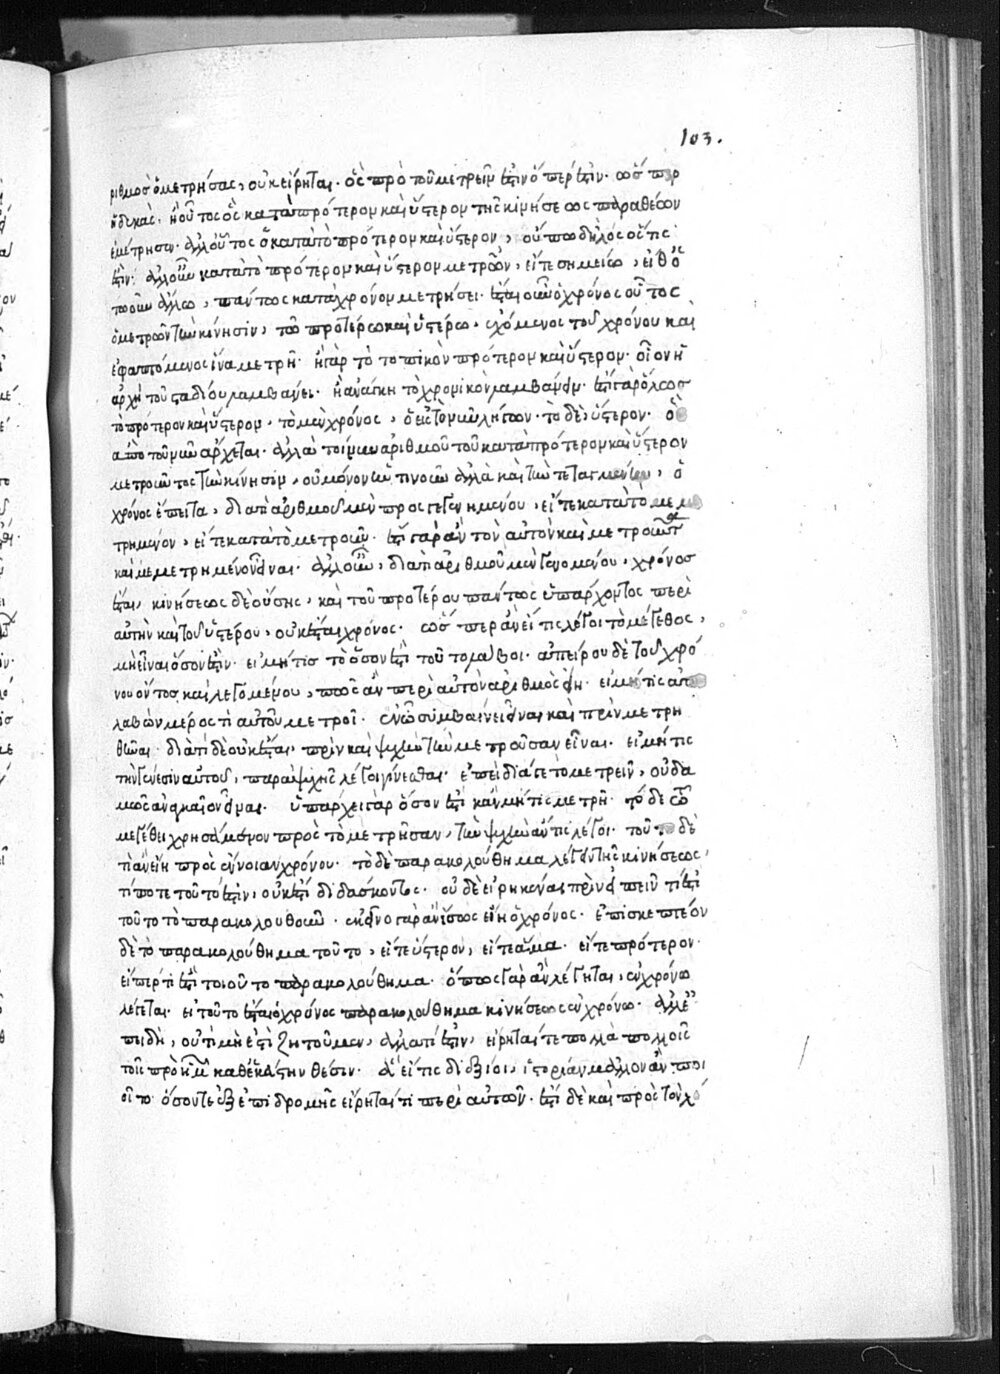 ριθμὸς ὁ μετρήσας, οὐκ εἴρηται. ὃς πρὸ τοῦ μετρεῖν ἐστιν ὅπερ ἐστίν. ὥσπερ
ἡ δεκὰς. ἢ οὗτος ὃς κατὰ τὸ πρότερον καὶ ὕστερον τῆς κινήσεως παραθέων
ἐμέτρησεν. ἀλλ' οὗτος ὁ κατὰ τὸ πρότερον καὶ ὕστερον, οὔπω δῆλος ὅστις
ἐστίν. ἀλλ' οὖν κατὰ τὸ πρότερον καὶ ὕστερον μετρῶν, εἴτε σημείω, εἴθ' ὁ
τωοῦν ἄλλω, πάντως κατὰ χρόνον μετρήσει. ἔσται οὖν ὁ χρόνος οὗτος
ὁ μετρῶν τὴν κίνησιν, τῶ προτέρω καὶ ὑστέρω, ἐχόμενος τοῦ χρόνου καὶ
ἐφαπτόμενος ἵνα μετρῆ. ἢ γὰρ τὸ τοπικὸν πρότερον καὶ ὕστερον. οἷον ἡ
ἀρχὴ τοῦ σταδίου λαμβάνει. ἢ ἀνάγκη τὸ χρονικὸν λαμβάνειν. ἔστι γὰρ ὅλως
τὸ πρότερον καὶ ὕστερον, τὸ μὲν χρόνος, ὁ εἰς τὸ νῦν λήγων. τὸ δὲ, ὕστερον. ὃ
ἀπὸ τοῦ νῦν ἄρχεται. ἄλλο τοίνυν ἀριθμοῦ τοῦ κατὰ πρότερον καὶ ὕστερον
μετροῦντος τὴν κίνησιν, οὐ μόνον ἡντινοῦν ἀλλὰ καὶ τὴν τεταγμένην, ὁ
χρόνος ἔπειτα, διατί ἀριθμοῦ μὲν προσγεγενημένου, εἴτε κατὰ τὸ με
τρημένον, εἴτε κατὰ τὸ μετροῦν. ἔστι γὰρ ἂν τὸν αὐτὸν καὶ μετροῦντα
καὶ μεμετρημένον εἶναι. ἀλλ' οὖν, διατί ἀριθμοῦ μὲν γενομένου, χρόνος
ἔσται, κινήσεως δὲ οὔσης, καὶ τοῦ προτέρου πάντως ὑπάρχοντος περὶ
αὐτὴν καὶ τοῦ ὑστέρου, οὐκ ἔσται χρόνος. ὥσπερ ἂν εἴ τις λέγοι τὸ μέγεθος,
μὴ εἶναι ὅσον ἐστίν. εἰ μή τις τὸ ὅσον ἐστὶ τοῦτο λάβοι. ἀπείρου δὲ τοῦ χρό
νου ὄντος καὶ λεγομένου, πῶς ἂν περὶ αὐτὸν ἀριθμὸς εἴη. εἰ μή τις ἀπο
λαβὼν μέρος τι αὐτοῦ μετροῖ. ἐν ὧ συμβαίνει εἶναι καὶ πρὶν μετρη
θῆναι. διατί δὲ οὐκ ἔσται πρὶν καὶ ψυχὴν τὴν μετροῦσαν εἶναι. εἰ μή τις
τὴν γένεσιν αὐτοῦ, παρὰ ψυχῆς λέγοι γίνεσθαι. ἐπεὶ διά γε τὸ μετρεῖν, οὐδα
μῶς ἀναγκαῖον εἶναι. ὑπάρχει γὰρ ὅσον ἐστὶ κἂν μή τις μετρῆ. τὸ δὲ τῶ
μεγέθει χρησάμενον πρὸς τὸ μετρῆσαι, τὴν ψυχὴν ἄν τις λέγοι. τοῦτο δὲ
τί ἂν εἴη πρὸς ἔννοιαν χρόνου. τὸ δὲ παρακολούθημα λέγειν τῆς κινήσεως,
τί ποτε τοῦτό ἐστιν, οὐκ ἔστι διδάσκοντος. οὐδὲ εἴρηκέναι πρὶν εἰπεῖν τί ἐστι
τοῦτο τὸ παρακολουθοῦν. ἐκεῖνο γὰρ ἂν ἴσως εἴη ὁ χρόνος. ἐπισκεπτέον
δὲ τὸ παρακολούθημα τοῦτο, εἴτε ὕστερον, εἴτε ἅμα. εἴτε πρότερον.
εἴπερ τι ἐστὶ τοιοῦτο παρακολούθημα. ὅπως γὰρ ἂν λέγηται, ἐν χρόνω
λέγεται. εἰ τοῦτο ἔσται ὁ χρόνος παρακολούθημα κινήσεως ἐν χρόνω. ἀλλ' ἐ
πειδὴ, οὐ τί μὴ ἐστὶ ζητοῦμεν, ἀλλὰ τί ἐστιν, εἴρηταί τε πολλὰ πολλοῖς
τοῖς πρὸ ἡμῶν καθ' ἑκάστην θέσιν. ἃ εἴ τις διεξίοι, ἱστορίαν μᾶλλον ἂν ποι
οῖτο. ὅσον τε ἐξ ἐπιδρομῆς εἴρηταί τι περὶ αὐτῶν. ἔστι δὲ καὶ πρὸς τὸν
103.